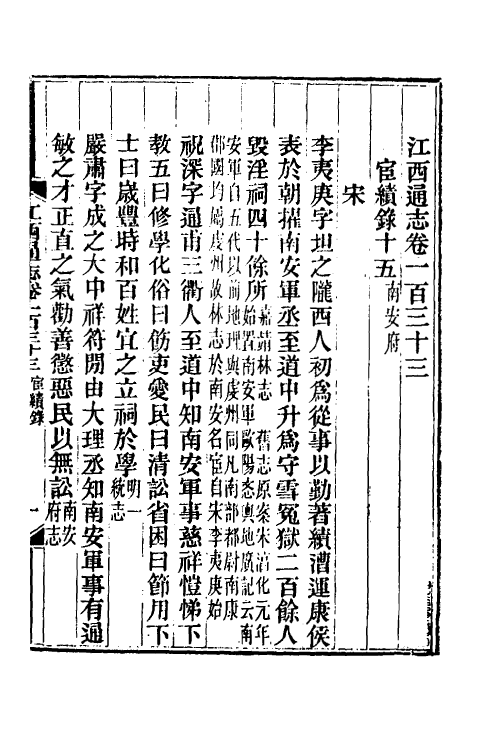 江西通志卷一百三十三
宦績錄十五南安府
宋
李夷庚字坦之隴西人初爲從事以勤著績漕運康侯
表於朝擢南安軍丞至道中升爲守雪冤獄二百餘人
毀淫祠四十餘所嘉靖林志 舊志原案宋淳化元年
始置南安軍歐陽忞輿地廣記云南
安軍自五代以前地理與虔州同凡南部都尉南康
郡國均屬虔州故林志於南安名宦自宋李夷庚始
祝深字通甫三衢人至道中知南安軍事慈祥愷悌下
教五曰修學化俗曰飭吏愛民曰清訟省囚曰節用下
士曰歲豐時和百姓宜之立祠於學明一
統志
嚴肅字成之大中祥符閒由大理丞知南安軍事有通
敏之才正直之氣勸善懲惡民以無訟南安
府志
江西通志卷一百三十三 宦績錄 一